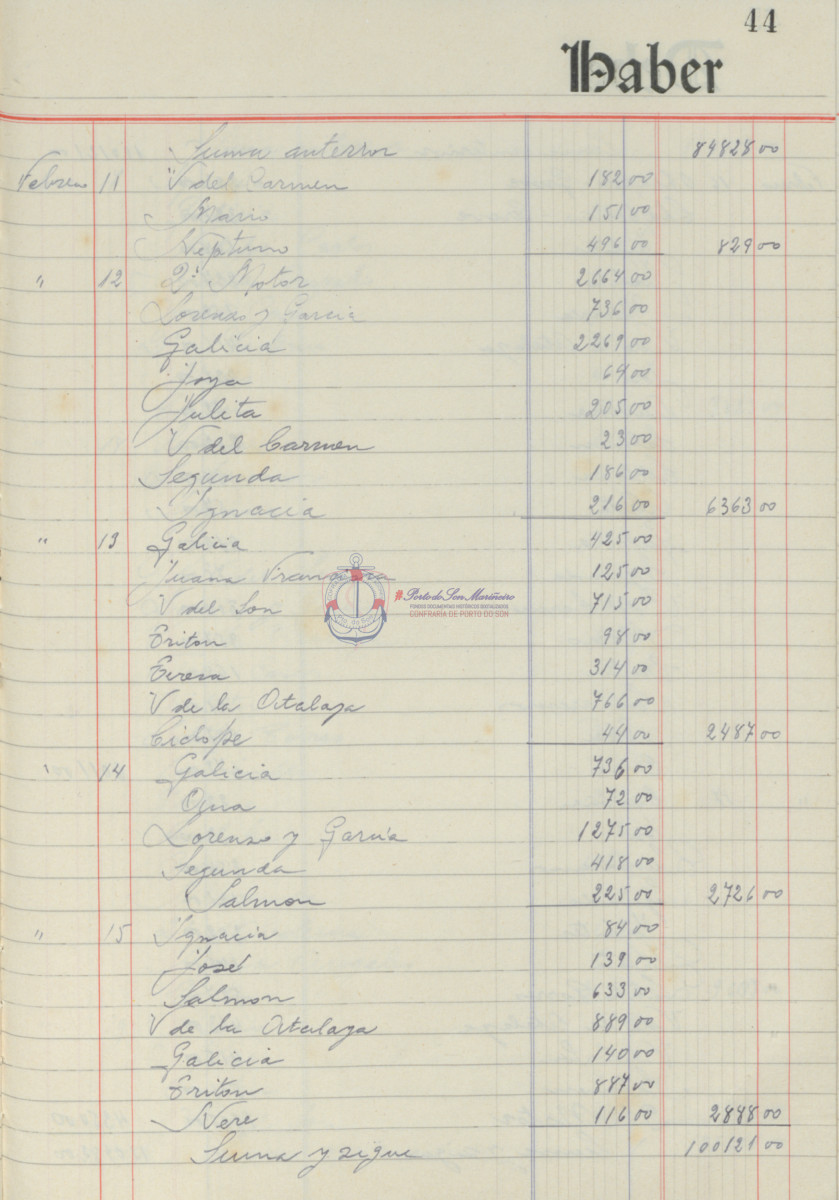 44
Haber
Suma anterior 84828 00
Febrero 11 V del Carmen 182 00
Mario 151 00
Neptuno 496 00 829 00
" 12 2º Motor 2664 00
Lorenzo y Garcia 736 00
Galicia 2269 00
Joya 64 00
Julita 205 00
V del Carmen 23 00
Segunda 186 00
Ignacia 216 00 6363 00
" 13 Galicia 425 00
Juana Francisca 125 00
V del Son 715 00
Triton 98 00
Teresa 314 00
V de la Atalaya 766 00
Ciclope 44 00 2487 00
" 14 Galicia 736 00
Ana 72 00
Lorenzo y Garcia 1275 00
Segunda 418 00
Salmon 225 00 2726 00
" 15 Ignacia 84 00
José 139 00
Salmon 633 00
V de la Atalaya 889 00
Galicia 140 00
Triton 887 00
Nere 116 00 2888 00
Suma y sigue 100121 00
#Porto do Son Mariñeiro
FONDOS DOCUMENTAIS HISTÓRICOS DIXITALIZADOS
CONFRARÍA DE PORTO DO SON